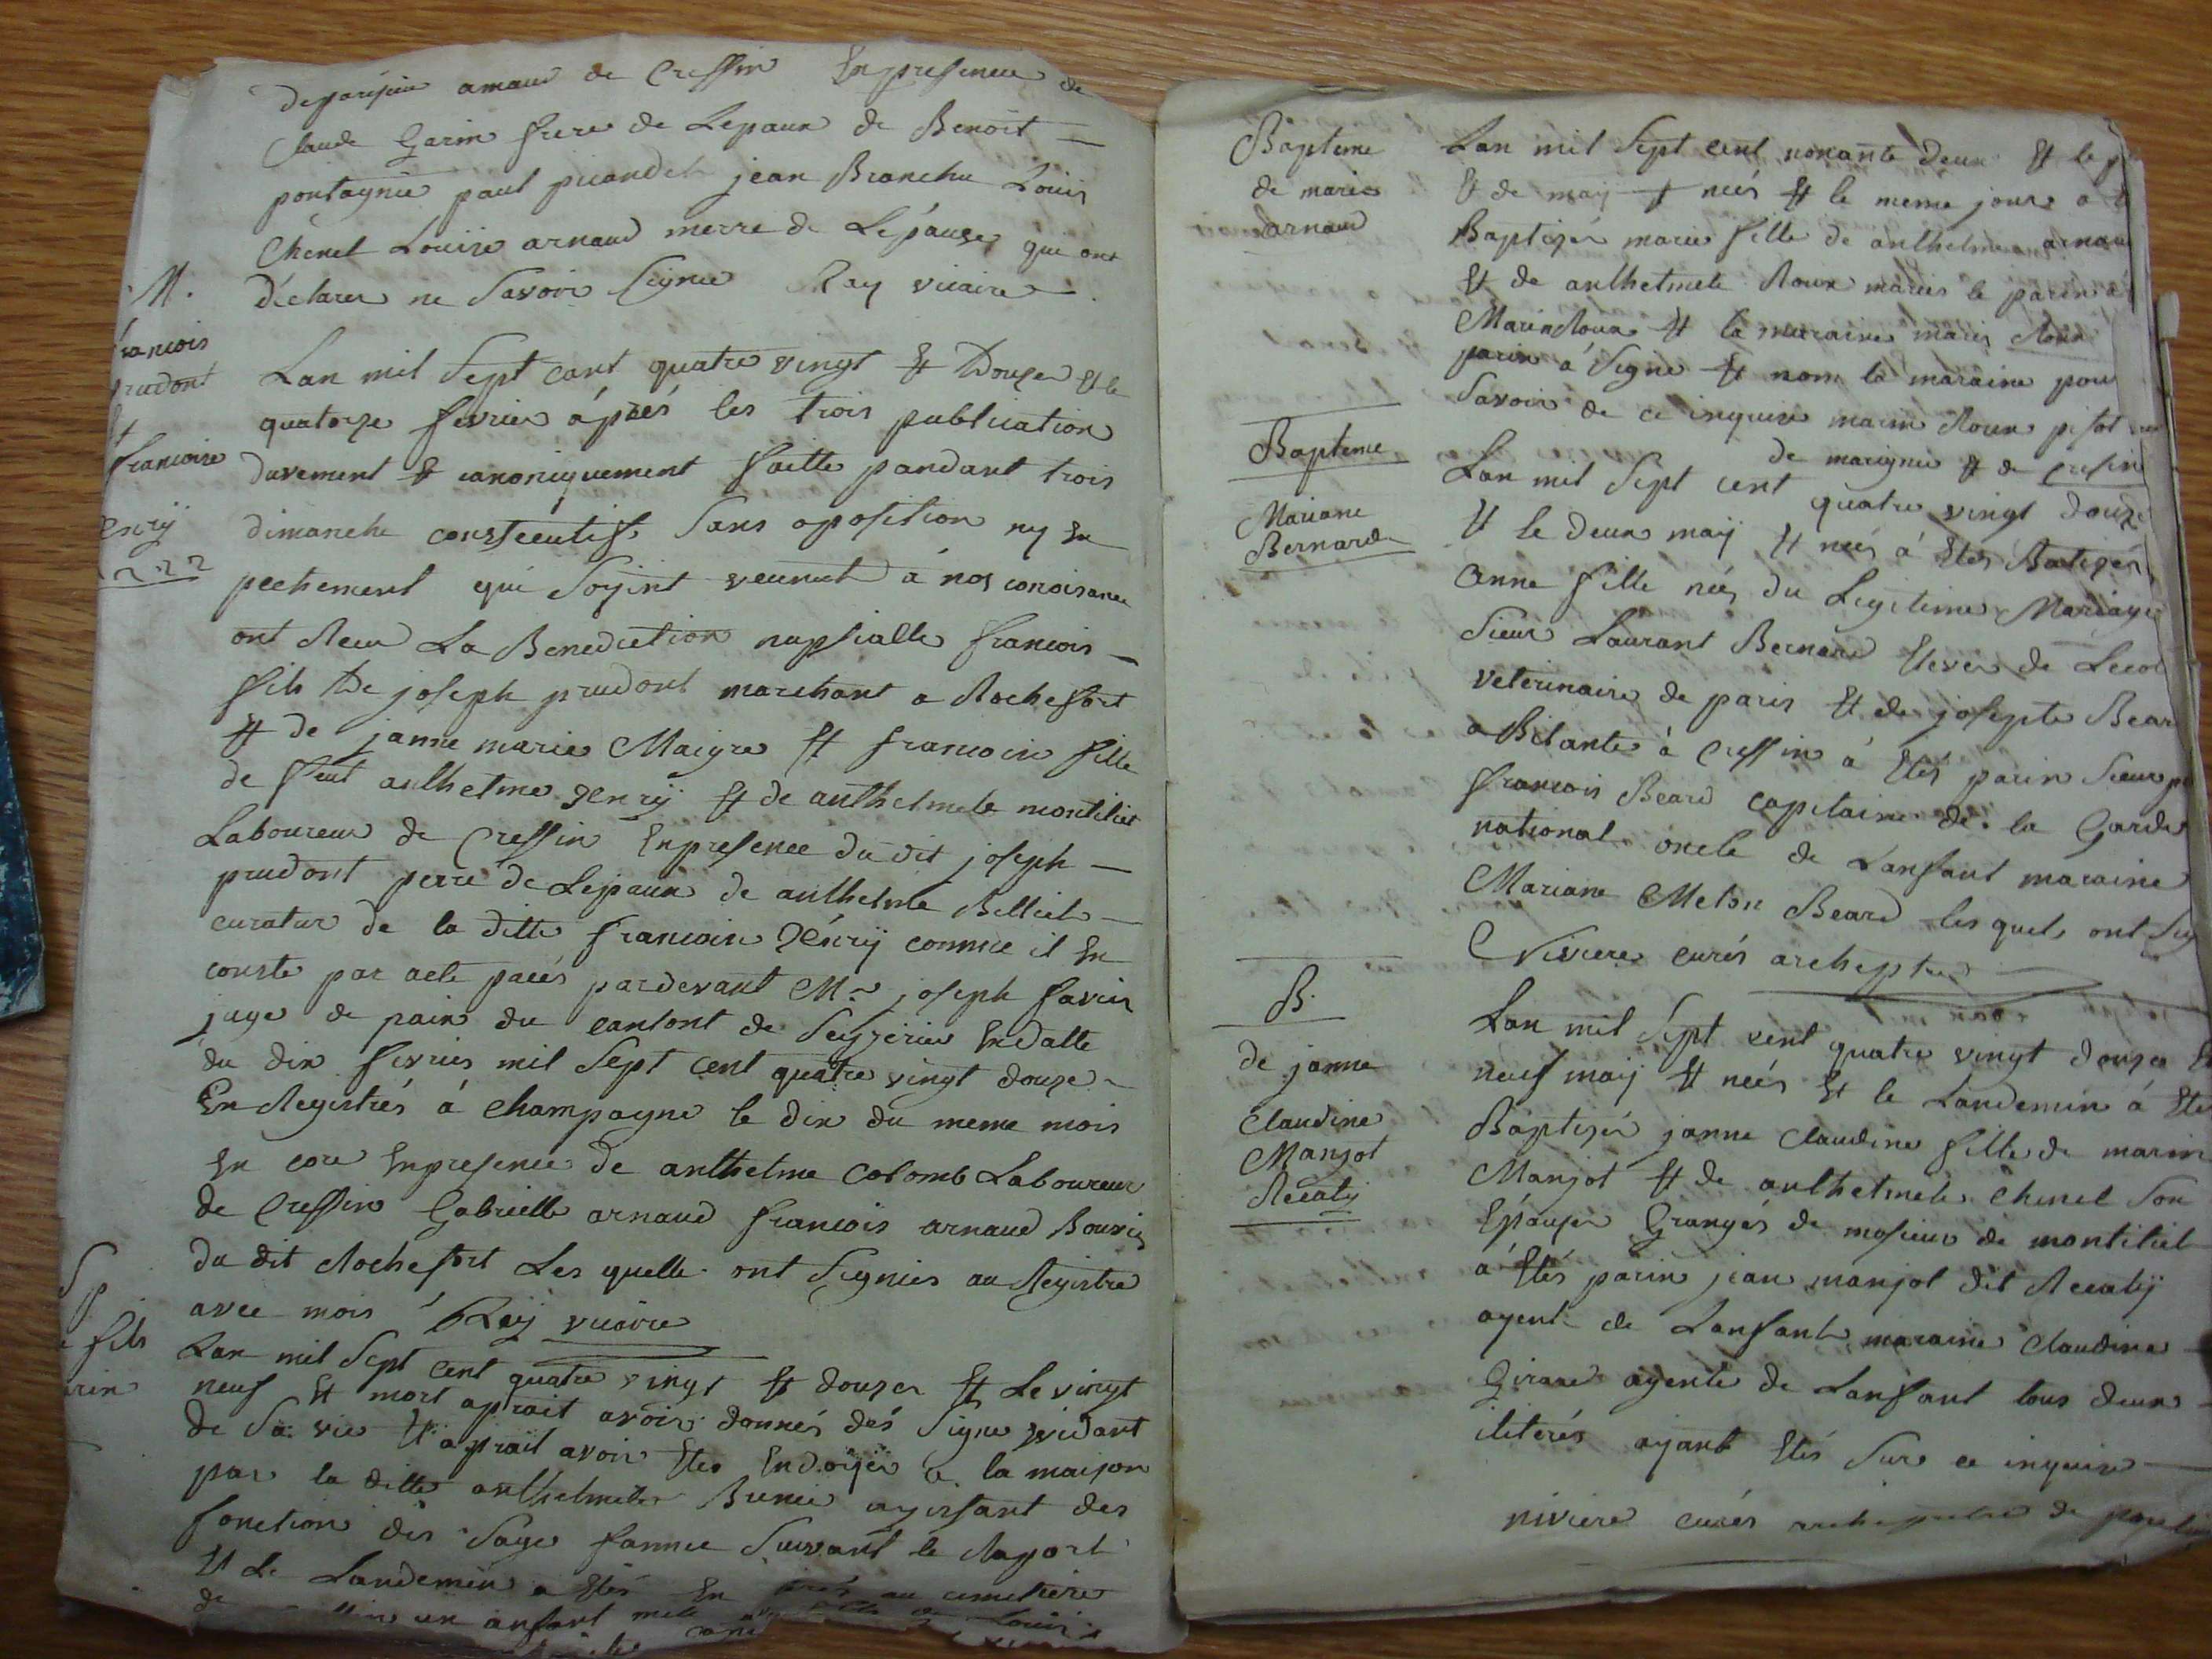 amaud de Cressin En presence de
Claude Garin frere de Lepaux de Benoit
pontagnié paul picandet jean Branche Louis
Chenel Louise arnaud merre de Lépause qui ont
déclarer ne Savoir Signer Ray vicaire
M.
francois
prudont
Et
francoise
henrÿ
Lan mil Sept cant quatre vingt Et Douze Et le
quatorze fevrier áprés les trois publication
duvement Et canoniquement faitte pandant trois
dimanche conssecutifs Sans oposition ny En
pechement qui Soyint veunut á nos conoisance
ont Receu La Benediction nupsialle francois
fils De joseph prudont marchant a Rochefort
Et de janne marie Maigre Et francoise fille
de feut anthelme henrÿ Et de anthelmete montiliet
Laboureur de Cressin En presence du dit joseph
prudont perre de Lepaux de anthelme Billiet
curatur de la ditte francoise hénrÿ comme il En
conste par acte pacés pardevant Mr. joseph favier
juge de paix du cantont de Seyzerieu En datte
du dix fevrier mil Sept Cent quatre vingt douze
En Registrés á Champagne le dix du meme mois
En core En presence de anthelme Colomb Laboureur
de Cressin Gabrielle arnaud francois arnaud Bouvier
du dit Rochefort Les quelle ont Signies au Registre
avec mois Reÿ vicaire
Sp
fils
Lan mil Sept Cent quatre vingt Et douzes Et Le vingt
neuf Et mort aprait avoir donnés dés Signe Evidant
de Sa vie Et aprait avoir Etes Endoÿer a la maison
par la ditte anthelmete Bunier agissant des
fonction des Sage famme Suivant le Raport
Et Le Landemin a Etés En au cimetiere
de un anfant Louis
Bapteme
de marie
arnaud
Lan mil Sept cent nonante Deux Et le
Et de maij Et neés Et le meme jours a
Baptizés marie fille de anthelme arnau
Et de anthelmete Roux mariés le parin a
Marin Roux Et la maraine marie Roux
parin á Signe Et nom la maraine pour
Savoir de ce inquise marin Roux
de marignieu Et de Cresin
Bapteme
Mariane
Bernarde
Lan mil Sept cent quatre vingt douze
Et le Deux maÿ Et neés á Etes Batizés
Anne fille neés Du Legitime Mariage
Sieur Laurant Bernard Elever de Lecol
veterinaire de paris Et de josepte Bear
a Bitante á Cressin á Etés parin Sieur
francois Beard capitaine de la Garde
national oncle de Lanfant maraine
Mariane Meton Beard lesquels ont
Niviere curés archeptre
B.
de janne
Claudine
Manjot
Recaty
Lan mil Sept cent quatre vingt douze
neuf maij Et neés Et le Landemin á Etes
Baptizés janne Claudine fille de marin
Manjot Et de anthelmete Chenel Son
Epauser Grangés de mosieur de montiliet
á Etés parin jean manjot dit Recatÿ
agent de Lanfant maraine Claudine
Girard agente de Lanfant tous deux
iliterés ayant Etés Sure ce inquise
niviere curés archeptre de